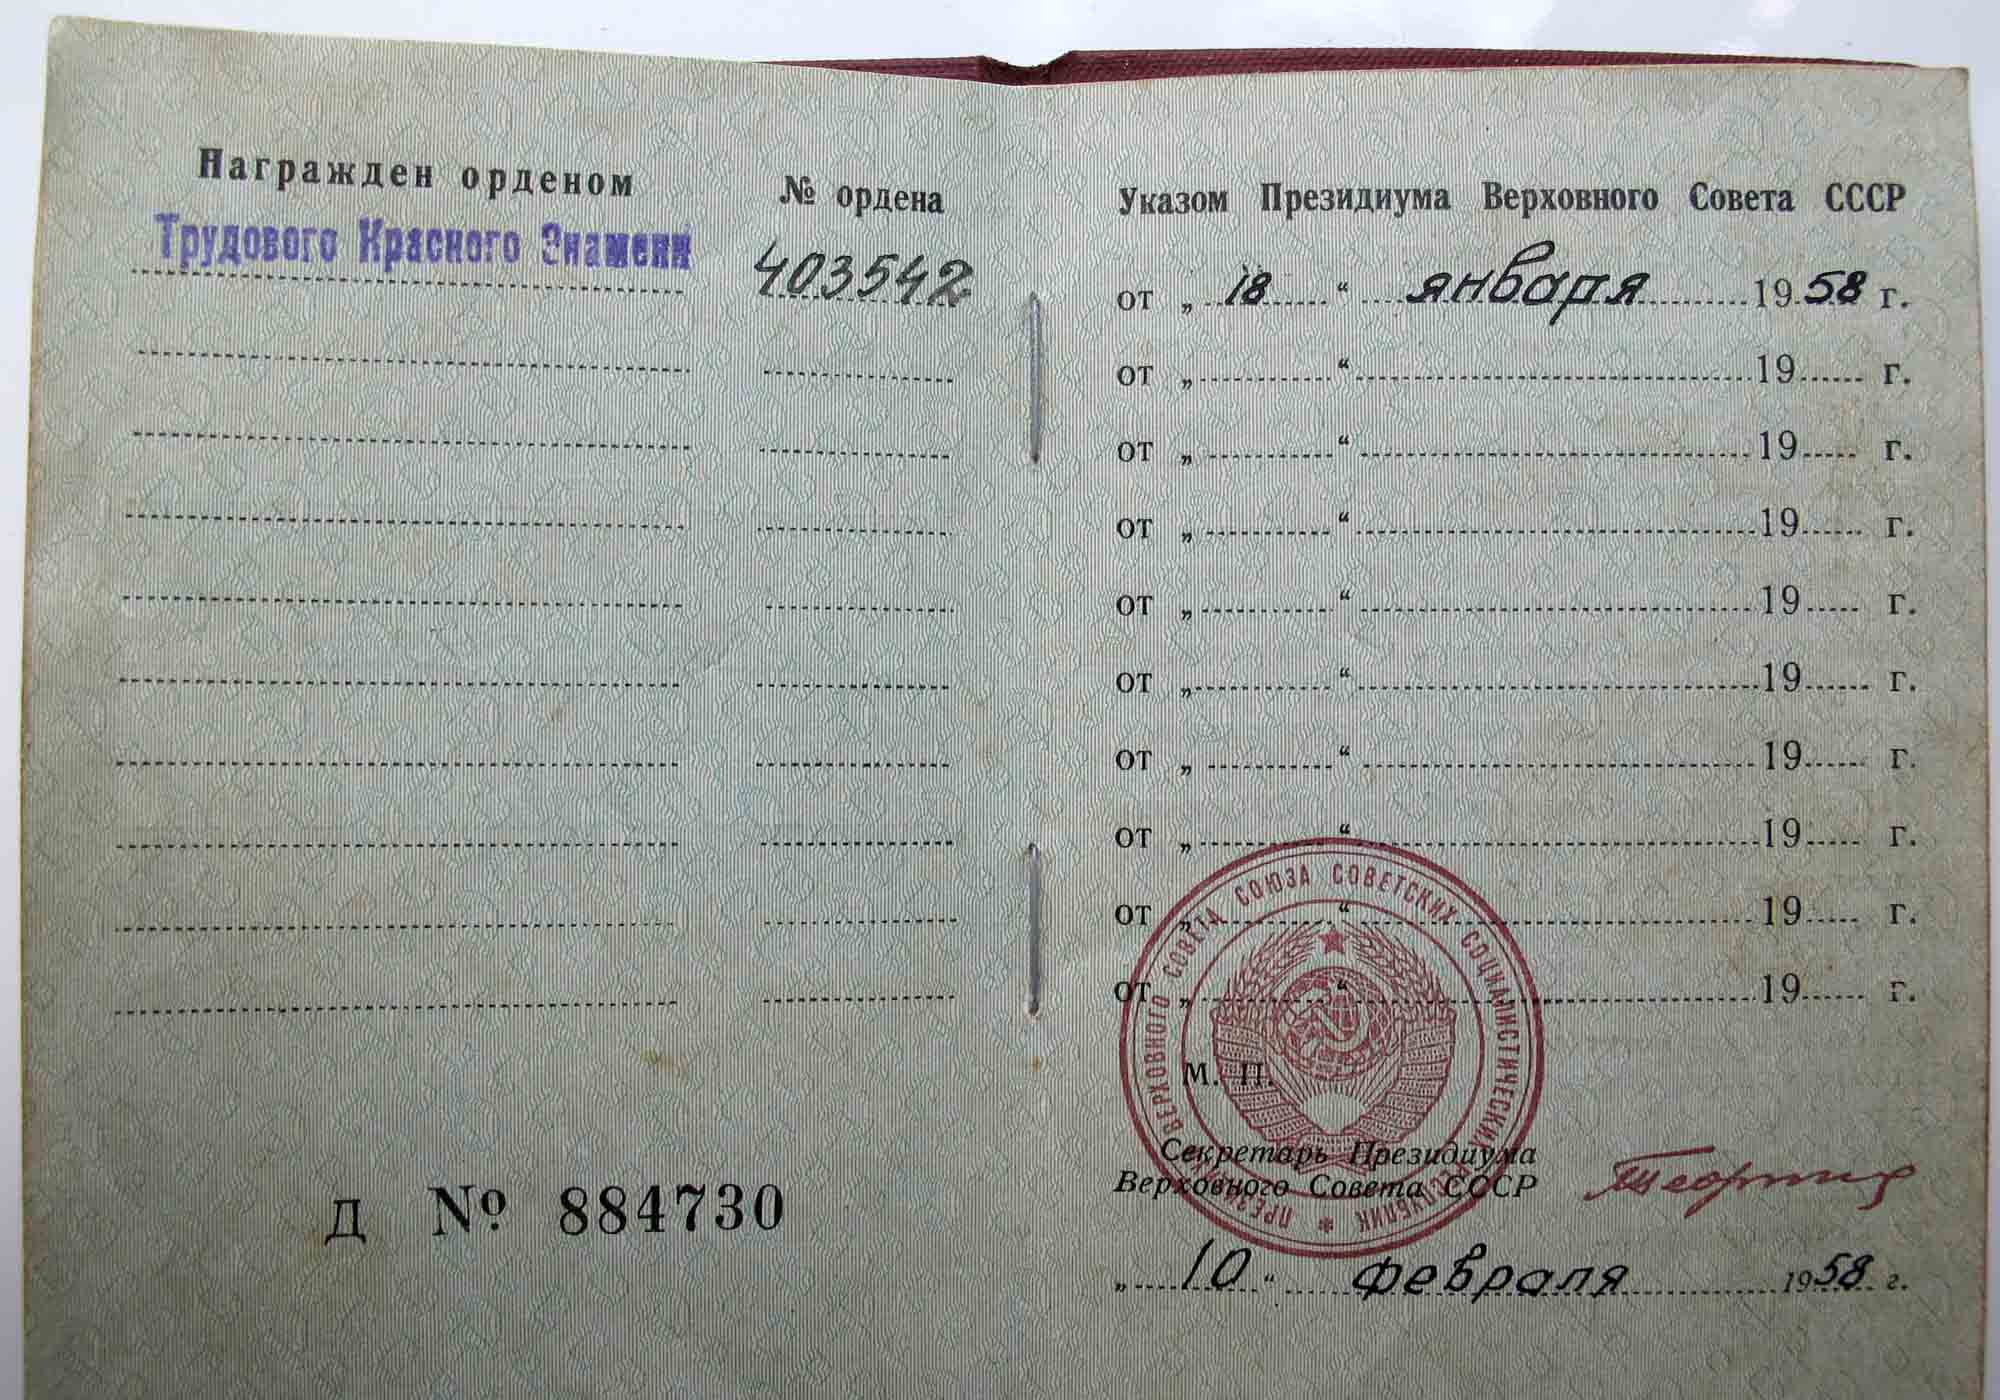 Награжден орденом
№ ордена
Трудового Красного Знамени
403542
Д № 884730
Указом Президиума Верховного Совета СССР
от „ 18 “ января 1958 г.
от „ “ 19 г.
от „ “ 19 г.
от „ “ 19 г.
от „ “ 19 г.
от „ “ 19 г.
от „ “ 19 г.
от „ “ 19 г.
от „ “ 19 г.
от „ “ 19 г.
ПРЕЗИДИУМ ВЕРХОВНОГО СОВЕТА СОЮЗА СОВЕТСКИХ СОЦИАЛИСТИЧЕСКИХ РЕСПУБЛИК
М. П.
Секретарь Президиума
Верховного Совета СССР
„ 10 “ февраля 1958 г.